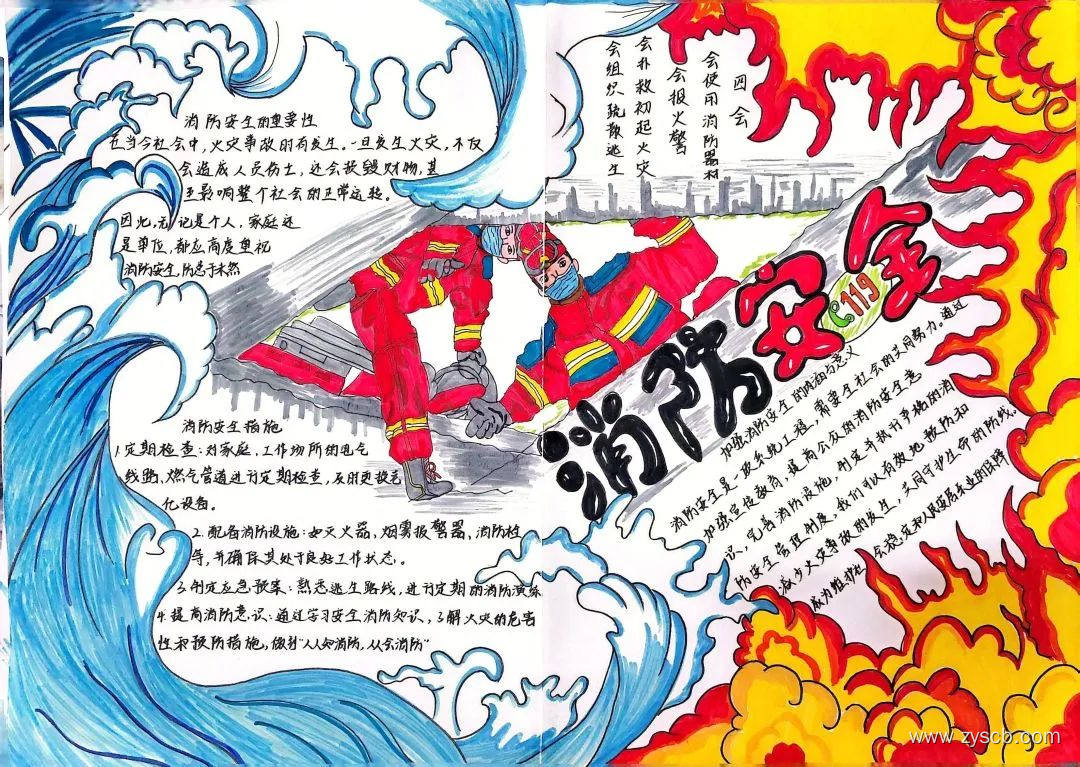 消防安全的重要性
在当今社会中,火灾事故时有发生。一旦发生火灾,不仅
会造成人员伤亡,还会损毁财物,甚
至影响整个社会的正常运转。
因此,无论是个人、家庭还
是单位,都应高度重视
消防安全,防患于未然
四会
会使用消防器材
会报火警
会扑救初起火灾
会组织疏散逃生
消防安全
119
消防安全措施
1.定期检查:对家庭,工作场所的电气
线路,燃气管道进行定期检查,及时更换老
化设备。
2.配备消防设施:如灭火器,烟雾报警器,消防栓
等,并确保其处于良好工作状态。
3.制定应急预案:熟悉逃生路线,进行定期的消防演练
4.提高消防意识:通过学习安全消防知识,了解火灾的危害
性和预防措施,做到“人人知消防,人会消防”
加强消防安全的内涵与意义
消防安全是一项系统工程,需要全社会的共同努力。通过
加强宣传教育,提高公众的消防安全意
识,完善消防设施,制定并执行严格的消
防安全管理制度,我们可以有效地预防和
减少火灾事故的发生,共同守护生命的防线。
成为维护社会稳定和人民安居乐业的
www.zyscb.com